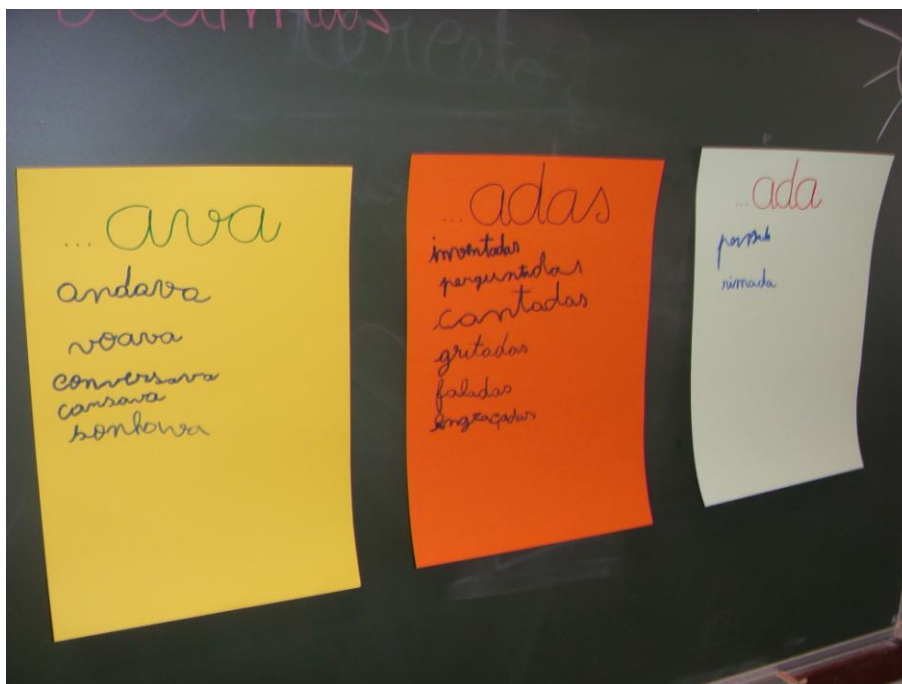 ... ava
andava
voava
conversava
cansava
sonhava
... adas
inventadas
perguntadas
cantadas
gritadas
faladas
engraçadas
... ada
rimada